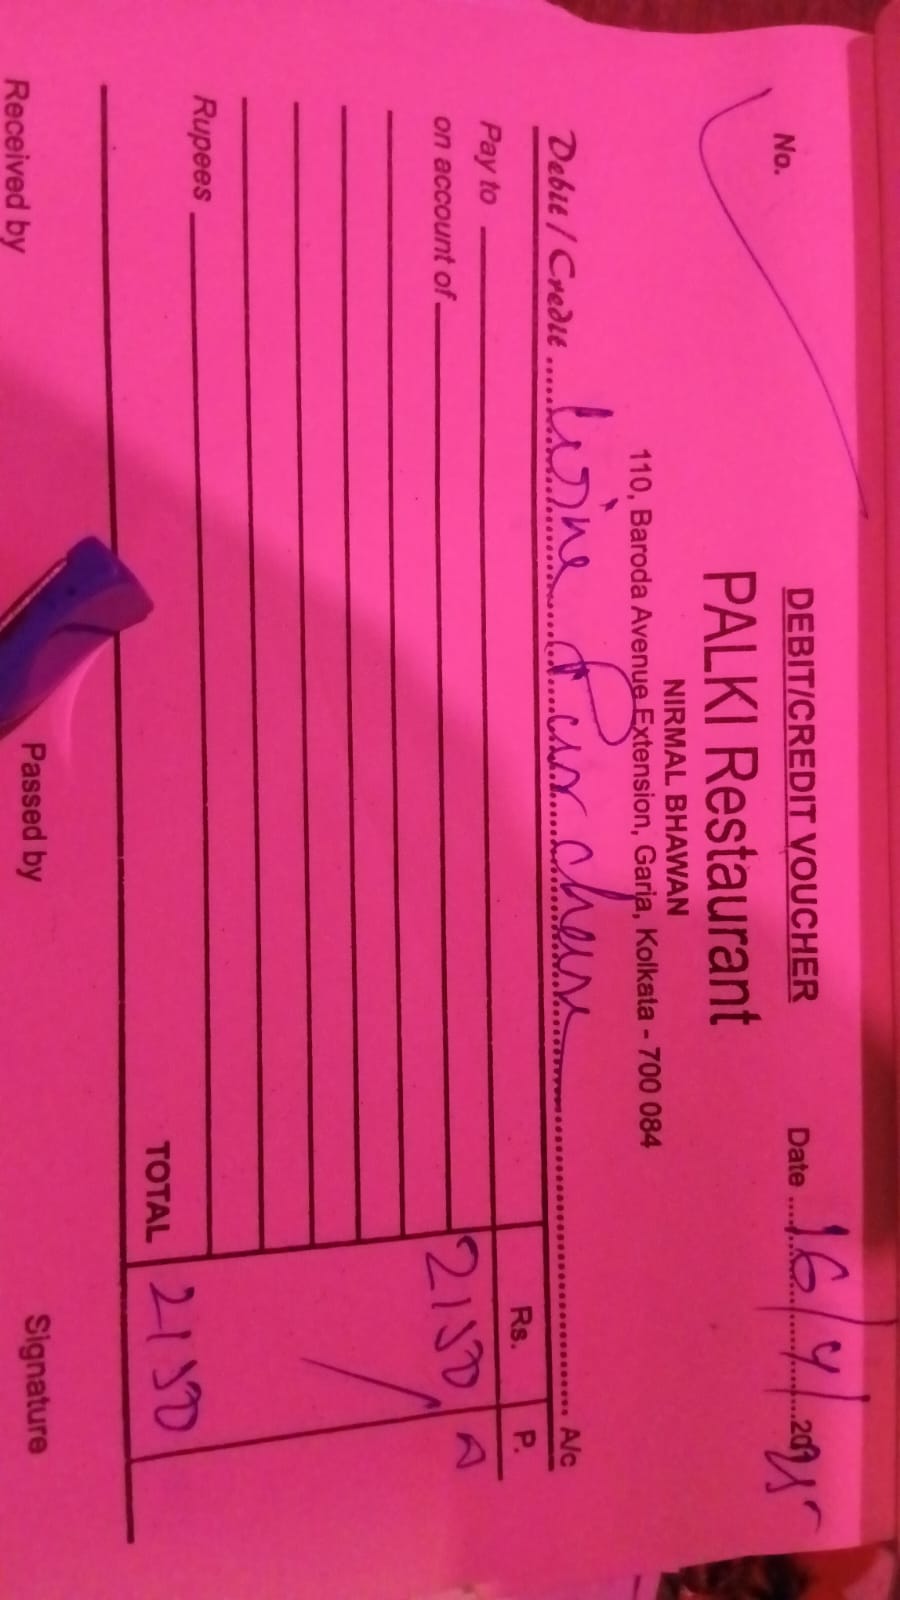 DEBIT/CREDIT VOUCHER
No.
Date 16/4/2025
PALKI Restaurant
NIRMAL BHAWAN
110, Baroda Avenue Extension, Garia, Kolkata - 700 084
Debit / Credit Wine Purchase A/c
Rs. P.
Pay to
on account of
Rupees
TOTAL
Received by Passed by Signature